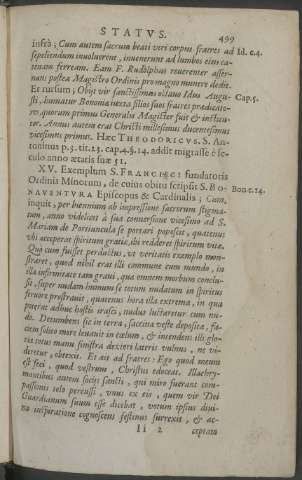 STATVS. 499
infrà; Cum autem sacrum beati viri corpus fratres ad Id. c.4.
sepeliendum inuoluerent, inuenerunt ad lumbos eius ca-
tenam ferream. Eam F. Rudolphus reuerenter asser-
uans postea Magistro Ordinis pro magno munere dedit.
Et rursum; Obijt vir sanctissimus octauo Idus Augu- Cap.5.
sti, humatur Bononiæ iuxta filios suos fratres prædicato-
res, quorum primus Generalis Magister fuit & institu-
tor. Annus autem erat Christi millesimus ducentesimus
vicesimus primus. Hæc THEODORICVS. S. An-
toninus p.3. tit.23. cap.4. §.14. addit migrasse è se-
culo anno ætatis suæ 51.
XV. Exemplum S. FRANCISCI fundatoris
Ordinis Minorum, de cuius obitu scripsit S. BO- Bon. c.14.
NAVENTVRA Episcopus & Cardinalis; Cum,
inquit, per biennium ab impressione sacrorum stigma-
tum, anno videlicet à sua conuersione vicesimo ad S.
Mariam de Portiuncula se portari poposcit, quatenus
vbi acceperat spiritum gratiæ, ibi redderet spiritum vitæ.
Quò cum fuisset perductus, vt veritatis exemplo mon-
straret, quod nihil erat illi commune cum mundo, in
illa infirmitate tam graui, quæ omnem morbum conclu-
sit, super nudam humum se totum nudatum in spiritus
feruore prostrauit, quatenus hora illa extrema, in qua
poterat adhuc hostis irasci, nudus luctaretur cum nu-
do. Decumbens sic in terra, saccina veste deposita, fa-
ciem solito more leuauit in cœlum, & intendens illi glo-
riæ totus manu sinistra dexteri lateris vulnus, ne vi-
deretur, obtexit. Et ait ad fratres: Ego quod meum
est feci, quod vestrum, Christus edoceat. Illachry-
mantibus autem socijs sancti, qui miro fuerant com-
passionis telo percussi, vnus ex eis, quem vir Dei
Guardianum suum esse dicebat, votum ipsius diui-
na inspiratione cognoscens festinus surrexit, & ac-
Ii 2 ceptam